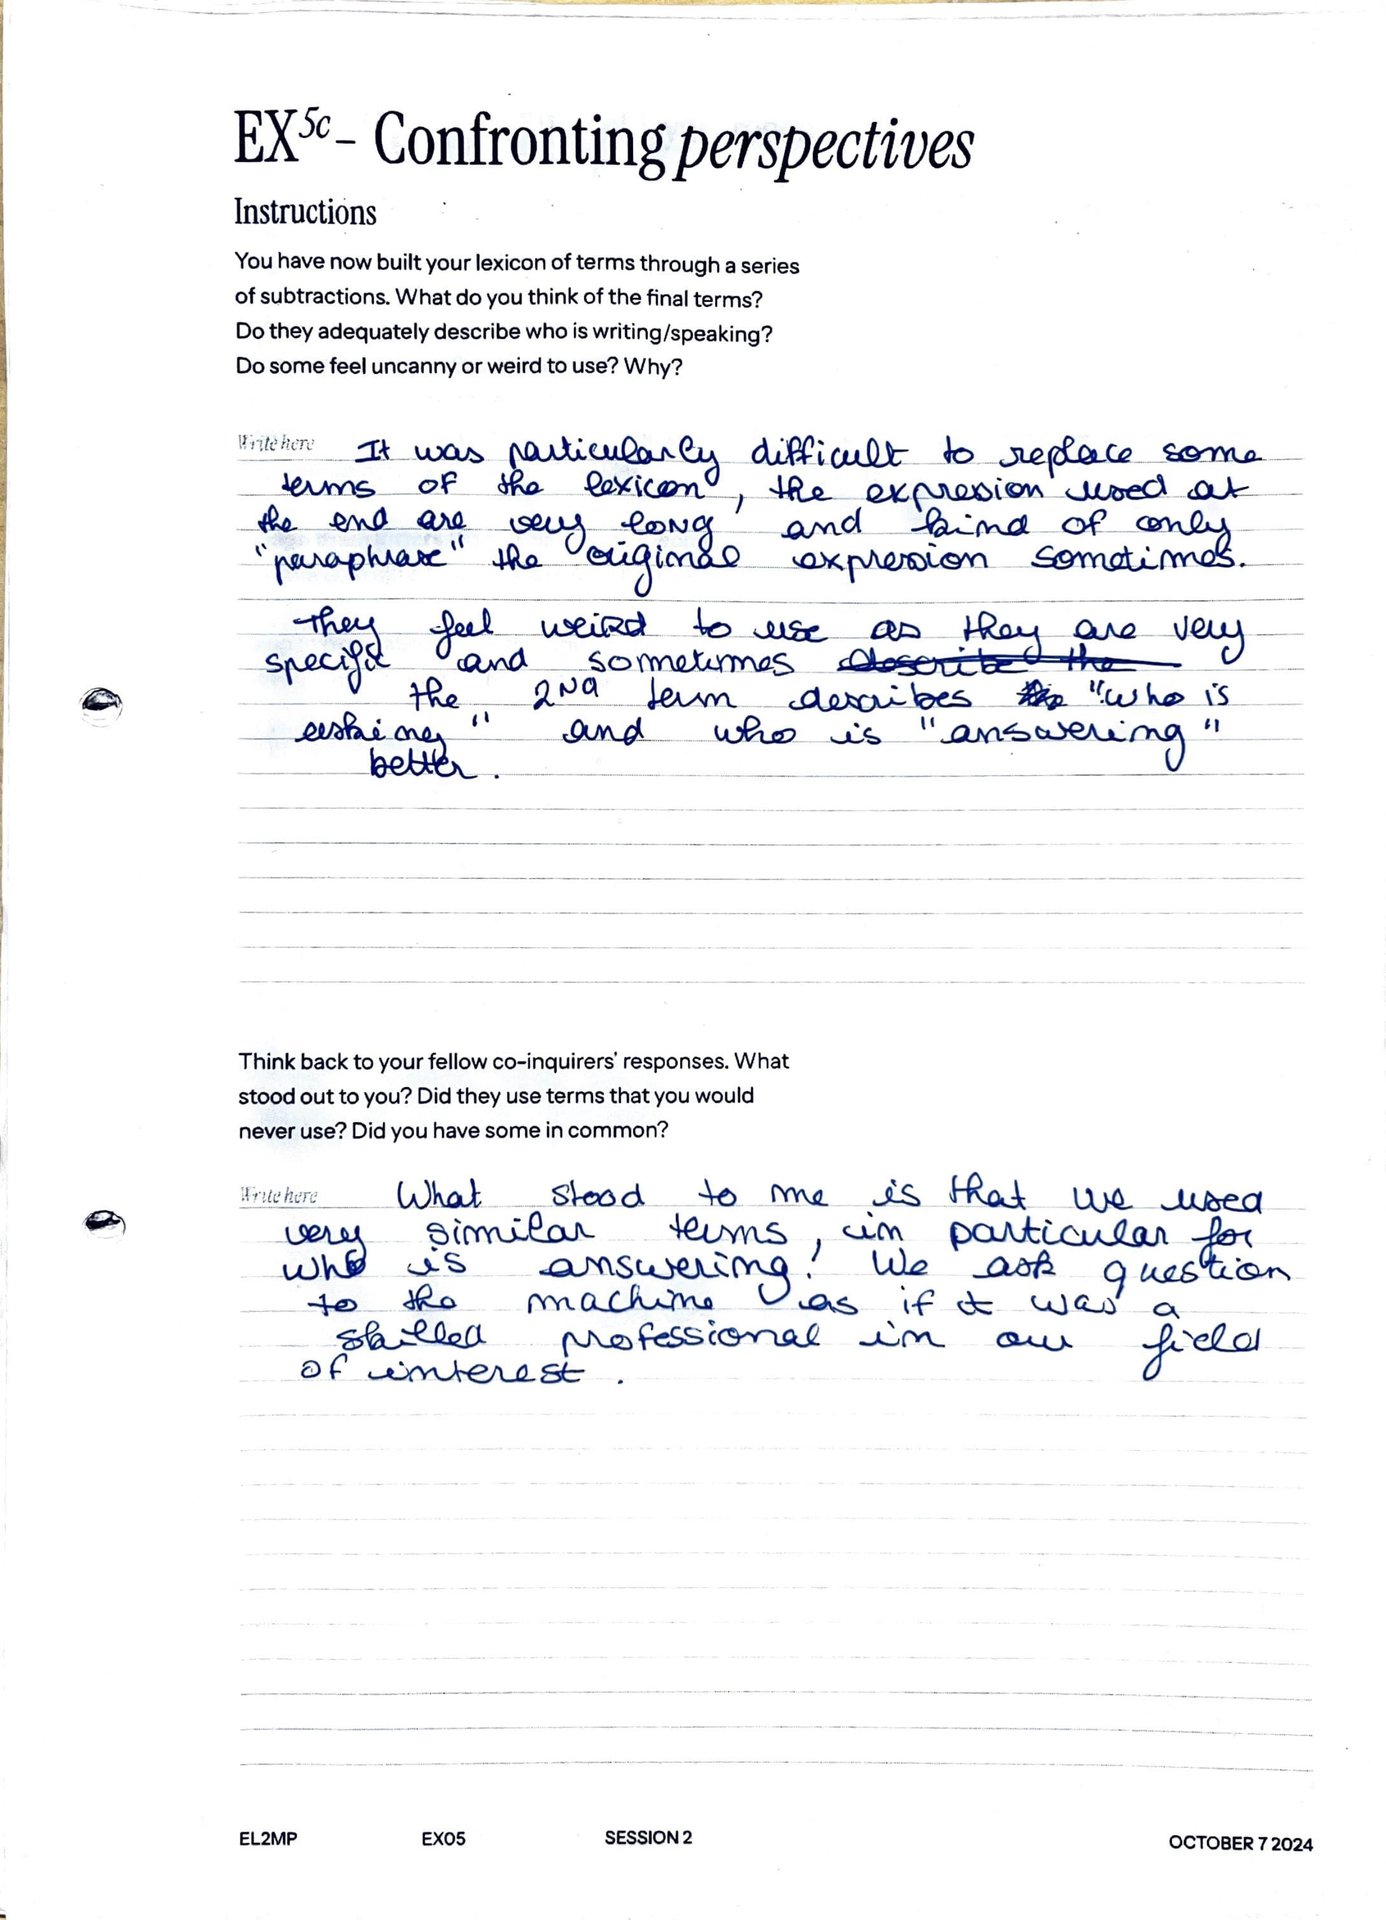 EX5c - Confronting perspectives
Instructions
You have now built your lexicon of terms through a series
of subtractions. What do you think of the final terms?
Do they adequately describe who is writing/speaking?
Do some feel uncanny or weird to use? Why?
Write here It was particularly difficult to replace some
terms of the lexicon, the expression used at
the end are very long and kind of only
"paraphrase" the original expression sometimes.
They feel weird to use as they are very
specific and sometimes describe the
the 2nd term describes the "who is
asking" and who is "answering"
better.
Think back to your fellow co-inquirers' responses. What
stood out to you? Did they use terms that you would
never use? Did you have some in common?
Write here What stood to me is that we used
very similar terms, in particular for
who is answering! We ask question
to the machine as if it was a
skilled professional in our field
of interest.
EL2MP EX05 SESSION 2 OCTOBER 7 2024